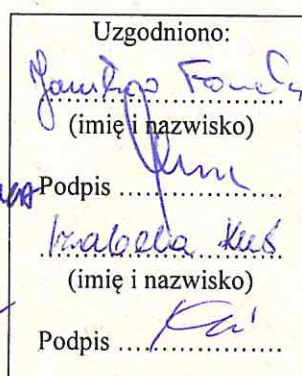 Uzgodniono:
(imię i nazwisko)
Podpis ..................
Izabella Kuś
(imię i nazwisko)
Podpis ..................